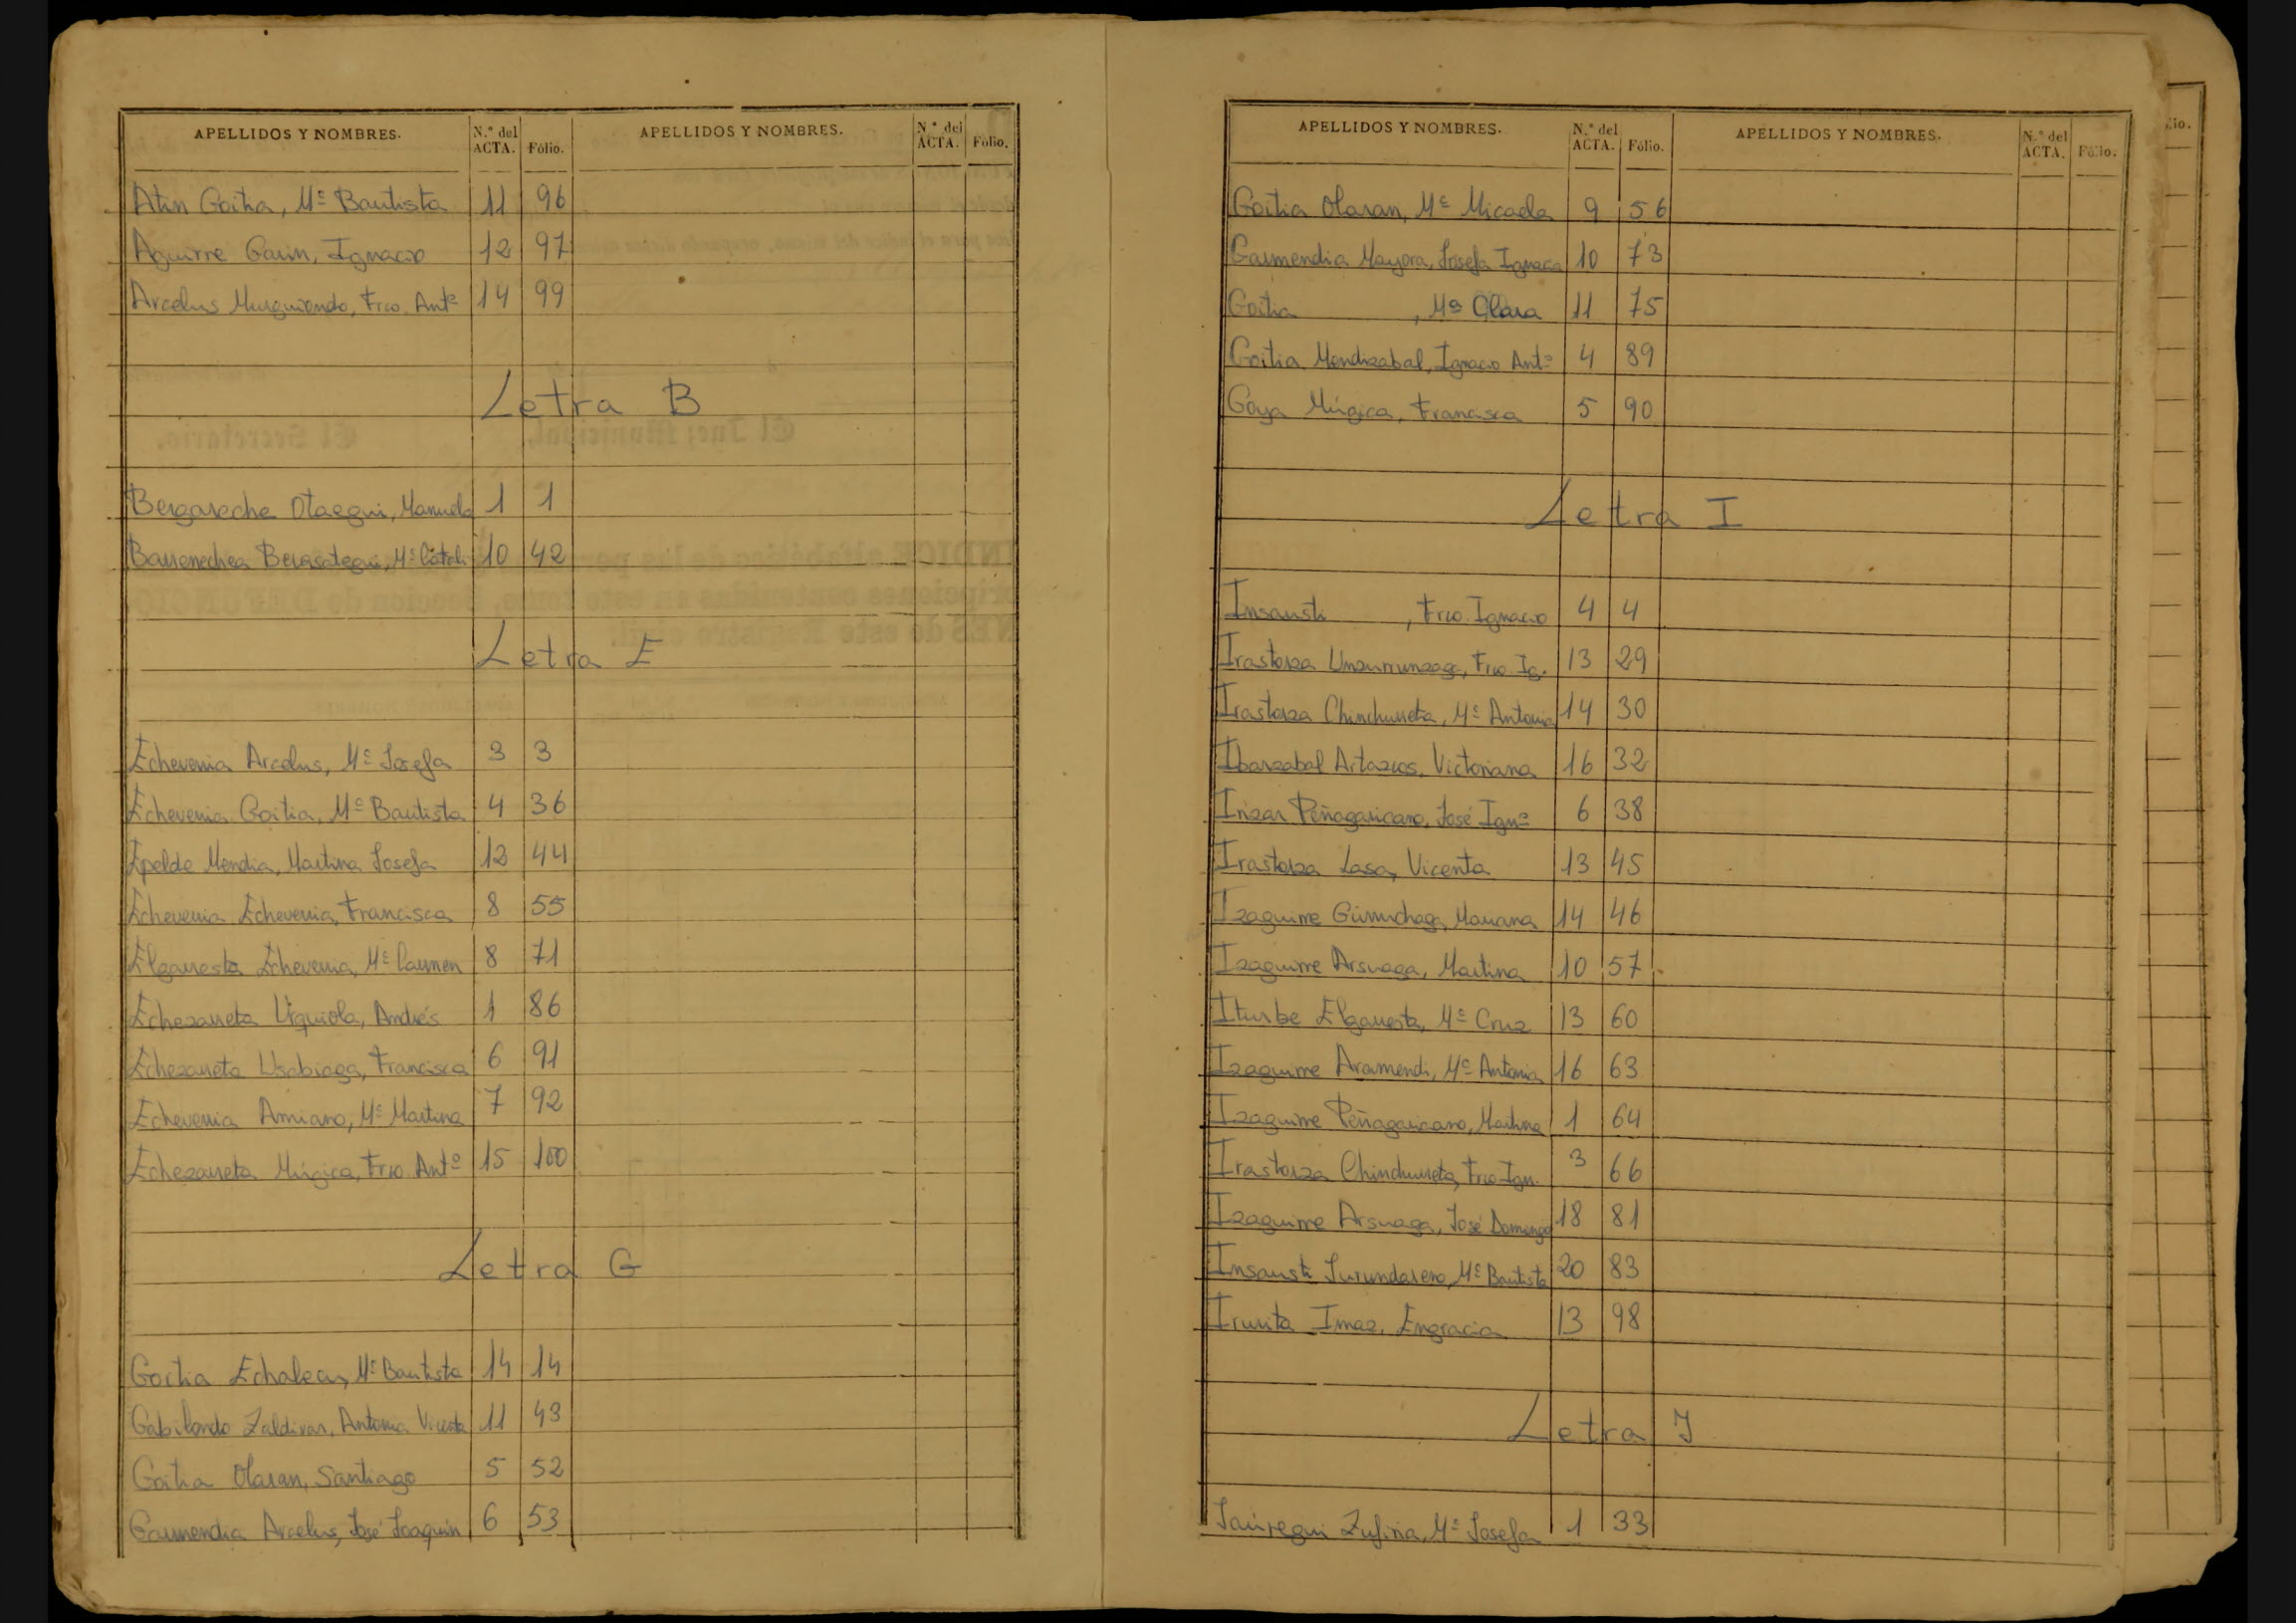 APELLIDOS Y NOMBRES. N.º del ACTA. Fólio. APELLIDOS Y NOMBRES. N.º del ACTA. Fólio.
Atin Goitia, Mª Bautista 11 96
Aguirre Garin, Ignacio 12 97
Arcelus Murguiondo, Frco. Antº 14 99
Letra B
Bergareche Otaegui, Manuela 1 1
Barrenechea Berasategui, Mª 10 42
Letra E
Echeverria Arcelus, Mª Josefa 3 3
Echeverria Goitia, Mª Bautista 4 36
Epelde Mendia, Martina Josefa 12 44
Echeverria Echeverria, Francisca 8 55
Elgarresta Echeverria, Mª Carmen 8 71
Echezarreta Urquiola, Andrés 1 86
Echezarreta Usabiaga, Francisca 6 91
Echeverria Amiano, Mª Martina 7 92
Echezarreta Múgica, Frco. Antº 15 100
Letra G
Goitia Echalecu, Mª Bautista 14 14
Gabilondo Zaldivar, Antonia Vicenta 11 43
Goitia Olaran, Santiago 5 52
Garmendia Arcelus, José Joaquín 6 53
APELLIDOS Y NOMBRES. N.º del ACTA. Fólio. APELLIDOS Y NOMBRES. N.º del ACTA. Fólio.
Goitia Olaran, Mª Micaela 9 56
Garmendia Mayora, Josefa Ignacia 10 73
Goitia , Mª Clara 11 75
Goitia Mendizabal, Ignacio Antº 4 89
Goya Múgica, Francisca 5 90
Letra I
Insausti , Frco. Ignacio 4 4
Irastorza Unzurrunzaga, Frco. Ig. 13 29
Irastorza Chinchurreta, Mª Antonia 14 30
Ibarzabal Artazcos, Victoriana 16 32
Inzar Peñagaricano, José Ignº 6 38
Irastorza Lasa, Vicenta 13 45
Izaguirre Guruchaga, Mariana 14 46
Izaguirre Arsuaga, Martina 10 57
Iturbe Elgarresta, Mª Cruz 13 60
Izaguirre Aramendi, Mª Antonia 16 63
Izaguirre Peñagaricano, Martina 1 64
Irastorza Chinchurreta, Frco. Ign. 3 66
Izaguirre Arsuaga, José Domingo 18 81
Insausti Jurundarena, Mª Bautista 20 83
Irurita Imaz, Engracia 13 98
Letra J
Jaúregui Zufiria, Mª Josefa 1 33